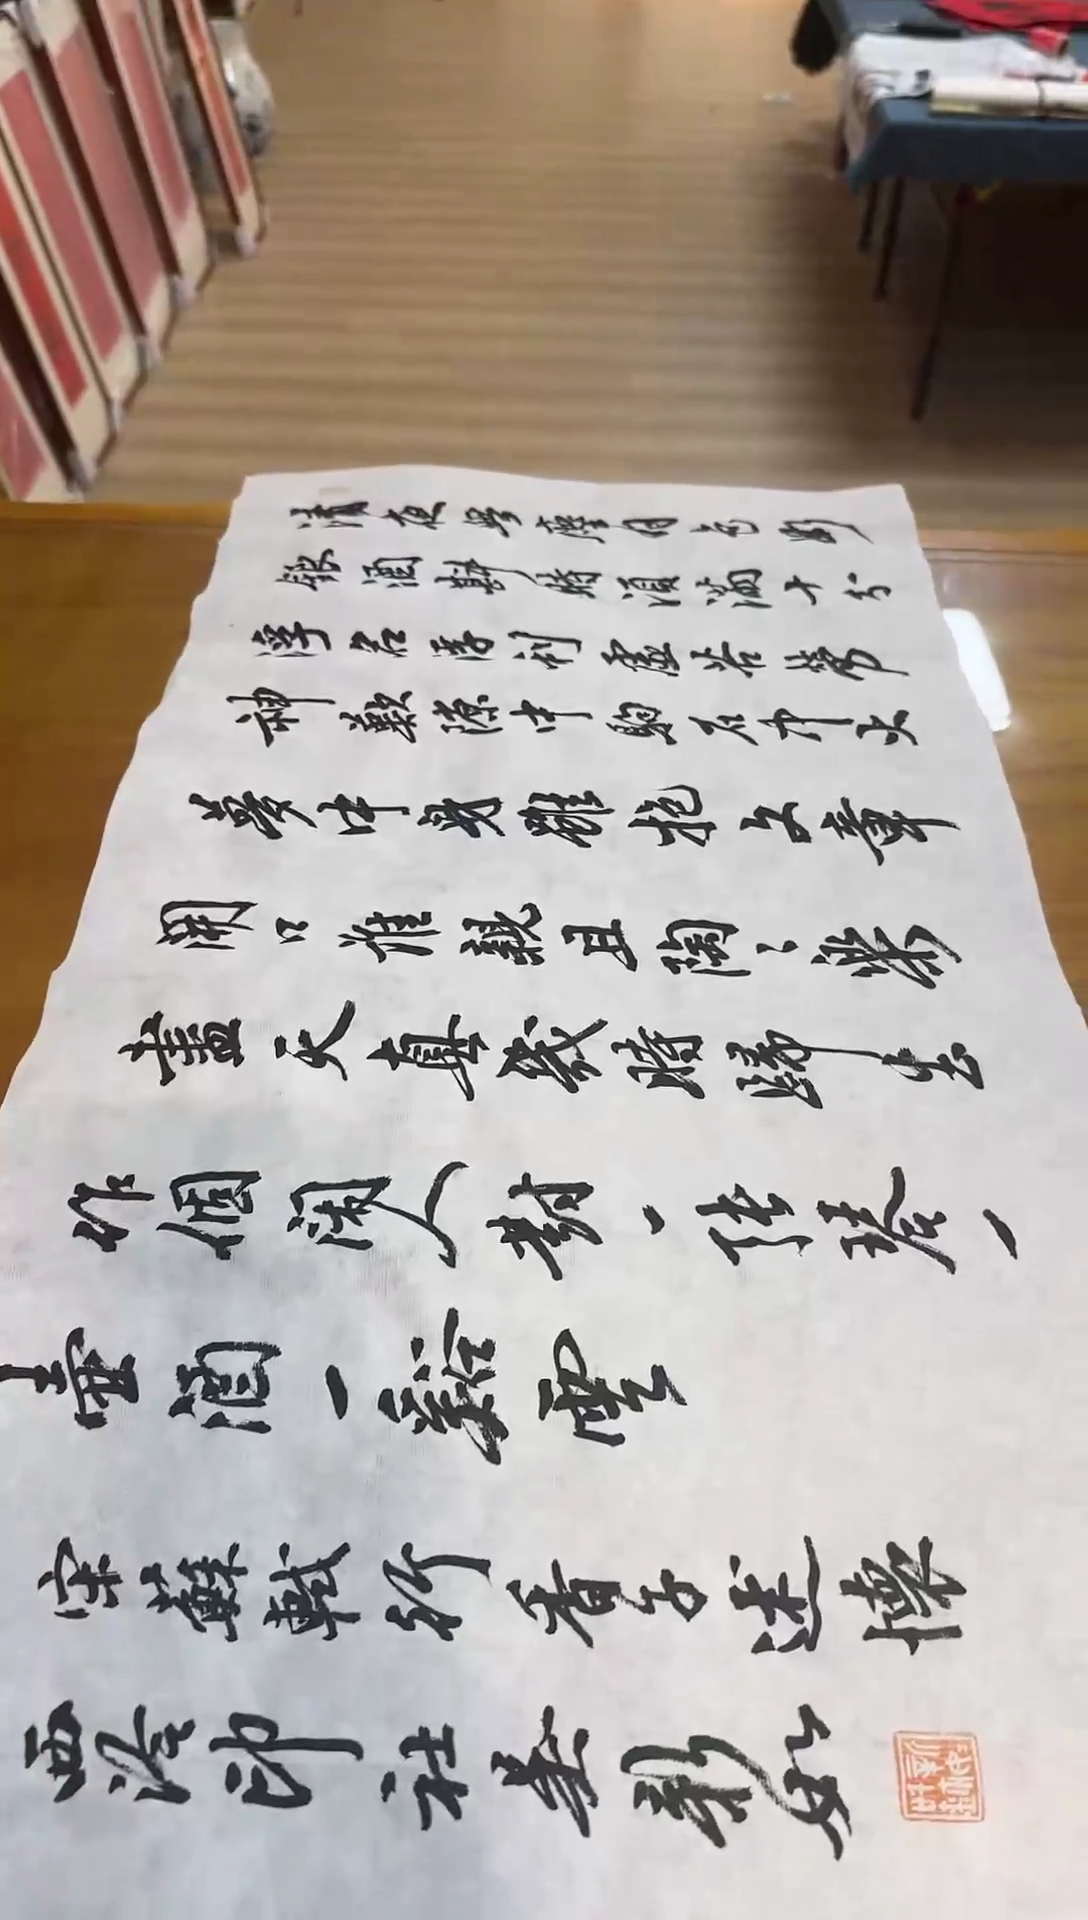 清夜無塵月色如
銀酒斟時須滿十分
浮名浮利虛苦勞
神歎隙中駒石中火
夢中身雖抱文章
開口誰親且陶〻樂
盡天真幾時歸去
作個閑人對一張琴一
壺酒一谿雲
宋蘇軾行香子述懷
西泠印社姜